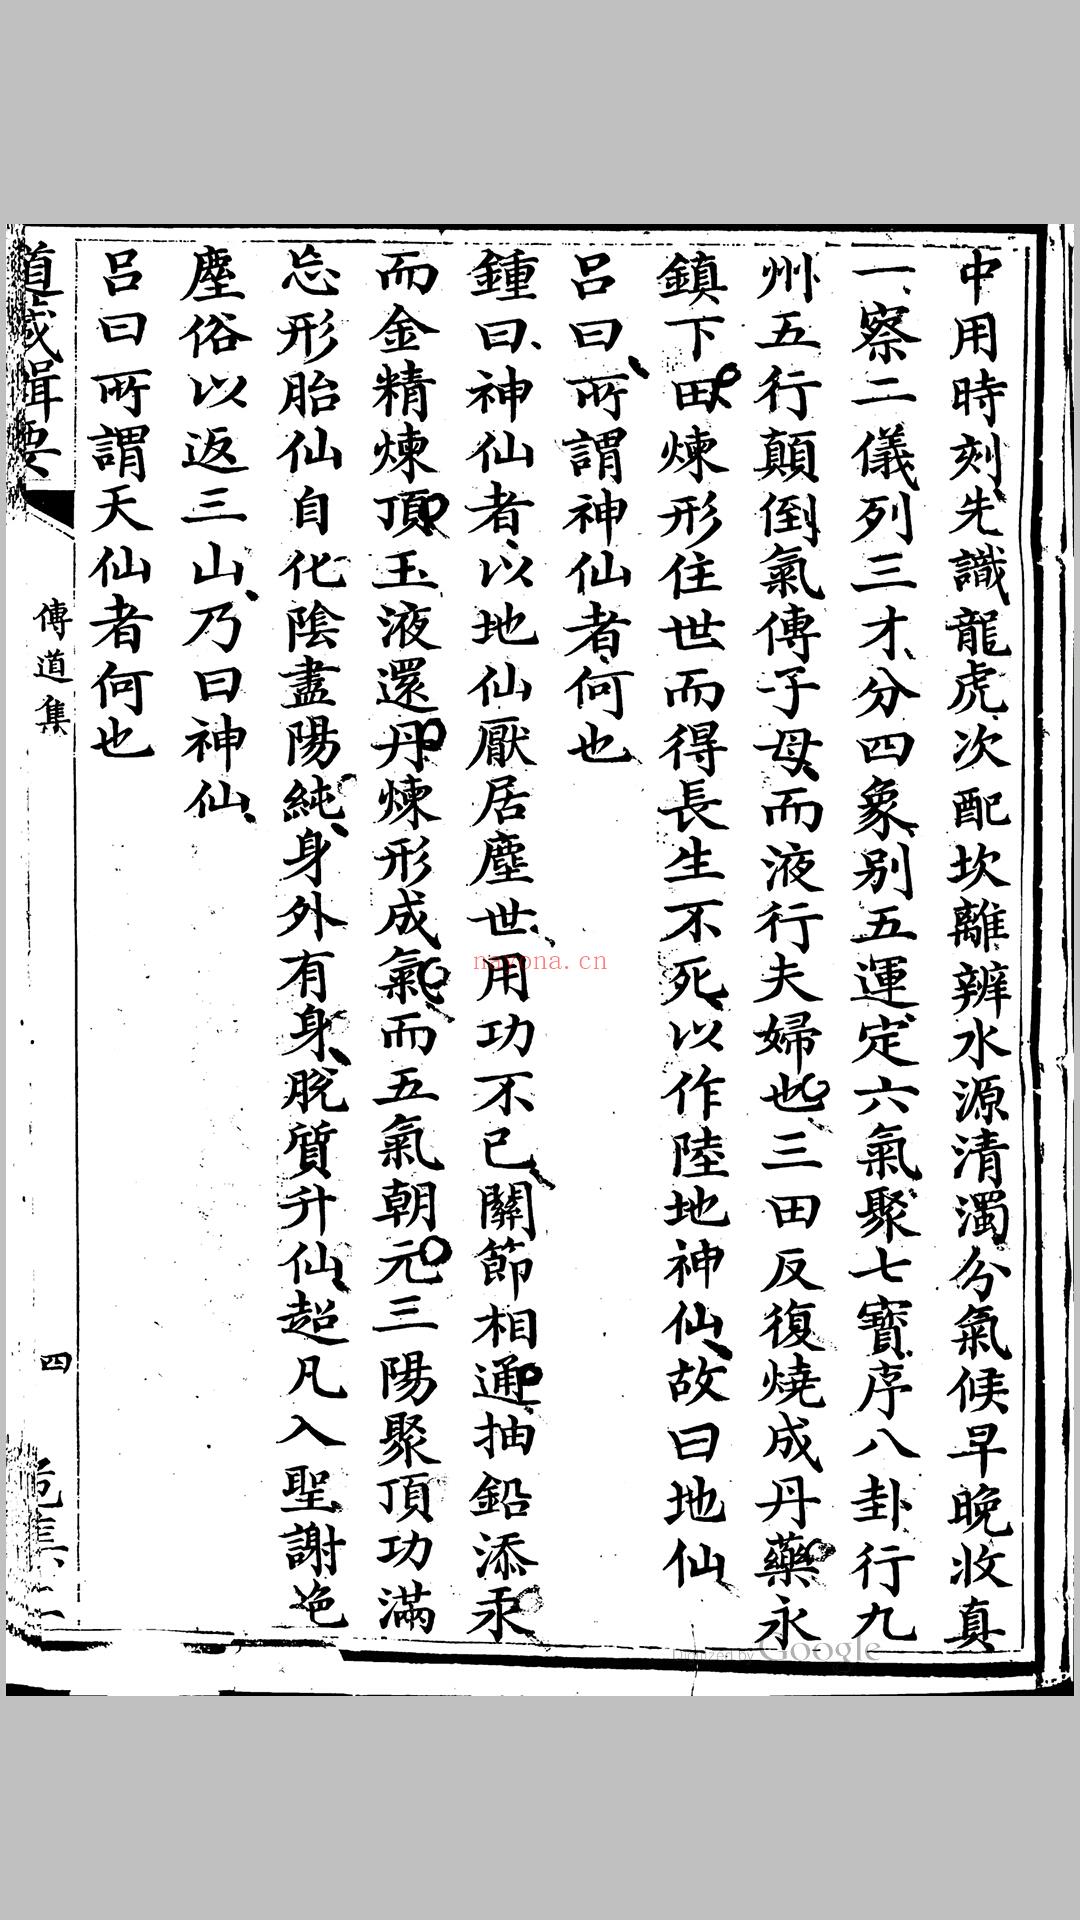 中用時刻先識龍虎次配坎離辨水源清濁分氣候早晚收真
一察二儀列三才分四象别五運定六氣聚七寶序八卦行九
州五行顛倒氣傳子母而液行夫婦也三田反復燒成丹藥永
鎮下田煉形住世而得長生不死以作陸地神仙故曰地仙
呂曰所謂神仙者何也
鍾曰神仙者以地仙厭居塵世用功不已關節相通抽鉛添汞
而金精煉頂玉液還丹煉形成氣而五氣朝元三陽聚頂功滿
忘形胎仙自化陰盡陽純身外有身脫質升仙超凡入聖謝絶
塵俗以返三山乃曰神仙
呂曰所謂天仙者何也
道藏輯要
傳道集
四
危集二
nayona.cn
Digitized by Google